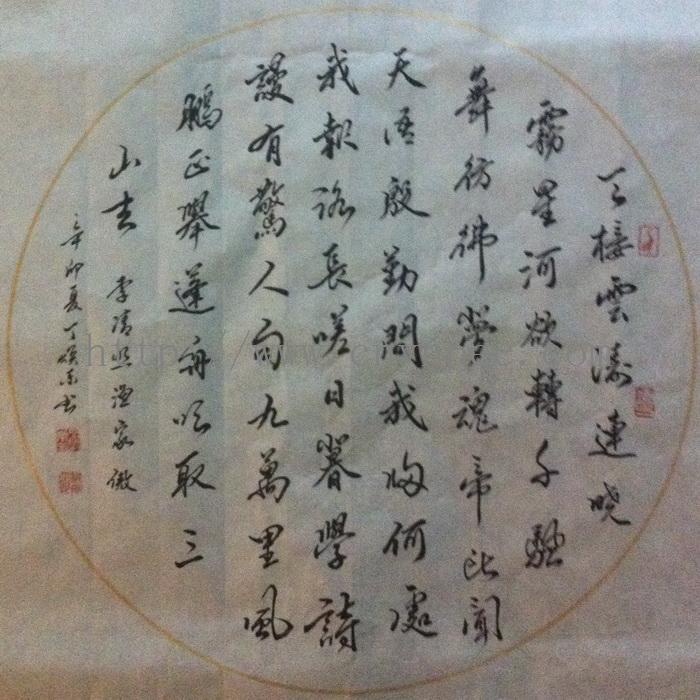 天接雲濤連晓
霧星河欲轉千颿
舞彷彿夢魂帝所聞
天语殷勤問我歸何處
我報路長嗟日暮學詩
謾有驚人句九萬里風
鵬正舉蓬舟吹取三
山去 李清照漁家傲
辛卯夏丁东书